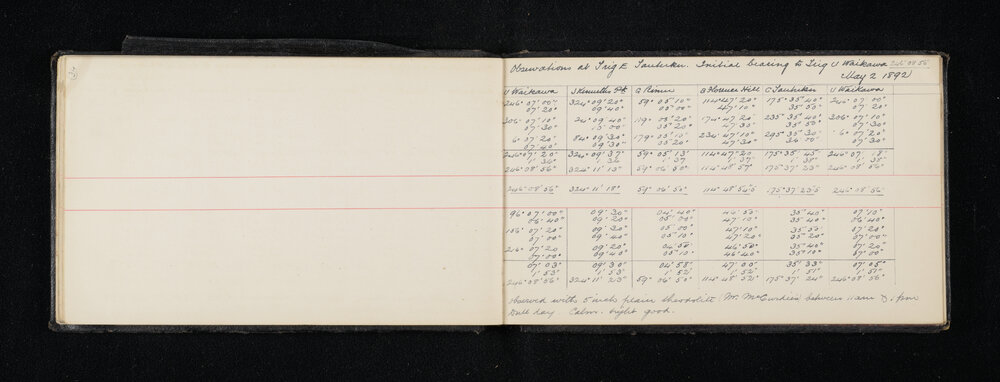 Observations at Trig E Tautuku. Initial bearing to Trig U Waikawa 246° 08' 56"
May 2 1892
U Waikawa G B Florence Hill C Tautuku U Waikawa
246° 07' 00" 324° 09' 20" 59° 05' 10" 114° 47' 20" 175° 35' 40" 246° 07' 00"
07' 20" 09' 40" 05' 00" 47' 10" 35' 50" 07' 20"
306° 07' 10" 24° 09' 40" 119° 05' 20" 174° 47' 20" 235° 35' 40" 306° 07' 10"
07' 30" 10' 00" 35' 50" 07' 30"
6° 07' 20" 84° 09' 30" 179° 05' 10" 234° 47' 10" 295° 35' 30" 6° 07' 20"
07' 40" 09' 30" 05' 20" 47' 30" 36' 00" 07' 30"
246° 07' 20" 324° 09' 37" 59° 05' 13" 114° 47' 20" 175° 35' 45" 246° 07' 18"
1' 36" 1' 36" 1' 37" 1' 37" 1' 38" 1' 38"
246° 08' 56" 324° 11' 13" 59° 06' 50" 114° 48' 57" 175° 37' 23" 246° 08' 56"
246° 08' 56" 324° 11' 18" 59° 06' 50" 114° 48' 54.5" 175° 37' 23.5" 246° 08' 56"
96° 07' 00" 09' 20" 04' 40" 46' 50" 35' 40" 07' 10"
06' 40" 09' 20" 05' 00" 47' 10" 35' 40" 06' 40"
156° 07' 20" 09' 30" 05' 00" 47' 10" 35' 20" 07' 20"
07' 00" 09' 40" 05' 10" 47' 20" 35' 20" 07' 00"
216° 07' 20" 09' 20" 04' 50" 46' 50" 35' 40" 07' 20"
07' 00" 09' 40" 05' 10" 46' 40" 35' 10" 07' 00"
07' 03" 09' 30" 04' 58" 47' 00" 35' 33" 07' 05"
1' 53" 1' 53" 1' 52" 1' 52" 1' 51" 1' 51"
246° 08' 56" 324° 11' 23" 59° 06' 50" 114° 48' 52" 175° 37' 24" 246° 08' 56"
Observed with 5 inch plain theodolite (Mr. McCurdies) between 11am & 1pm
Dull day Calm. Light good.